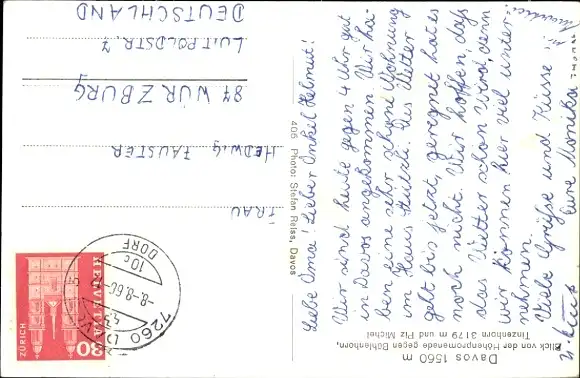 Davos 1560 m
Blick von der Höhenpromenade gegen Bühlenhorn,
Tinzenhorn 3179 m und Piz Michel
Liebe Oma! Lieber Onkel Helmut!
Wir sind heute gegen 4 Uhr gut
in Davos angekommen. Wir ha-
ben eine sehr schöne Wohnung
im Haus Das Wetter
geht bis jetzt, geregnet hat es
noch nicht. Wir hoffen, daß
das Wetter schön wird, denn
wir können hier viel unter-
nehmen.
Viele Grüße und Küsse
Eure Monika
405 Photo: Stefan Reiss, Davos
7260 DAVOS
DORF
10c
-8.-8.66
HELVETIA
80
ZÜRICH
FRAU
HEDWIG FAUSTER
87 WÜRZBURG
LUITPOLDSTR. 7
DEUTSCHLAND